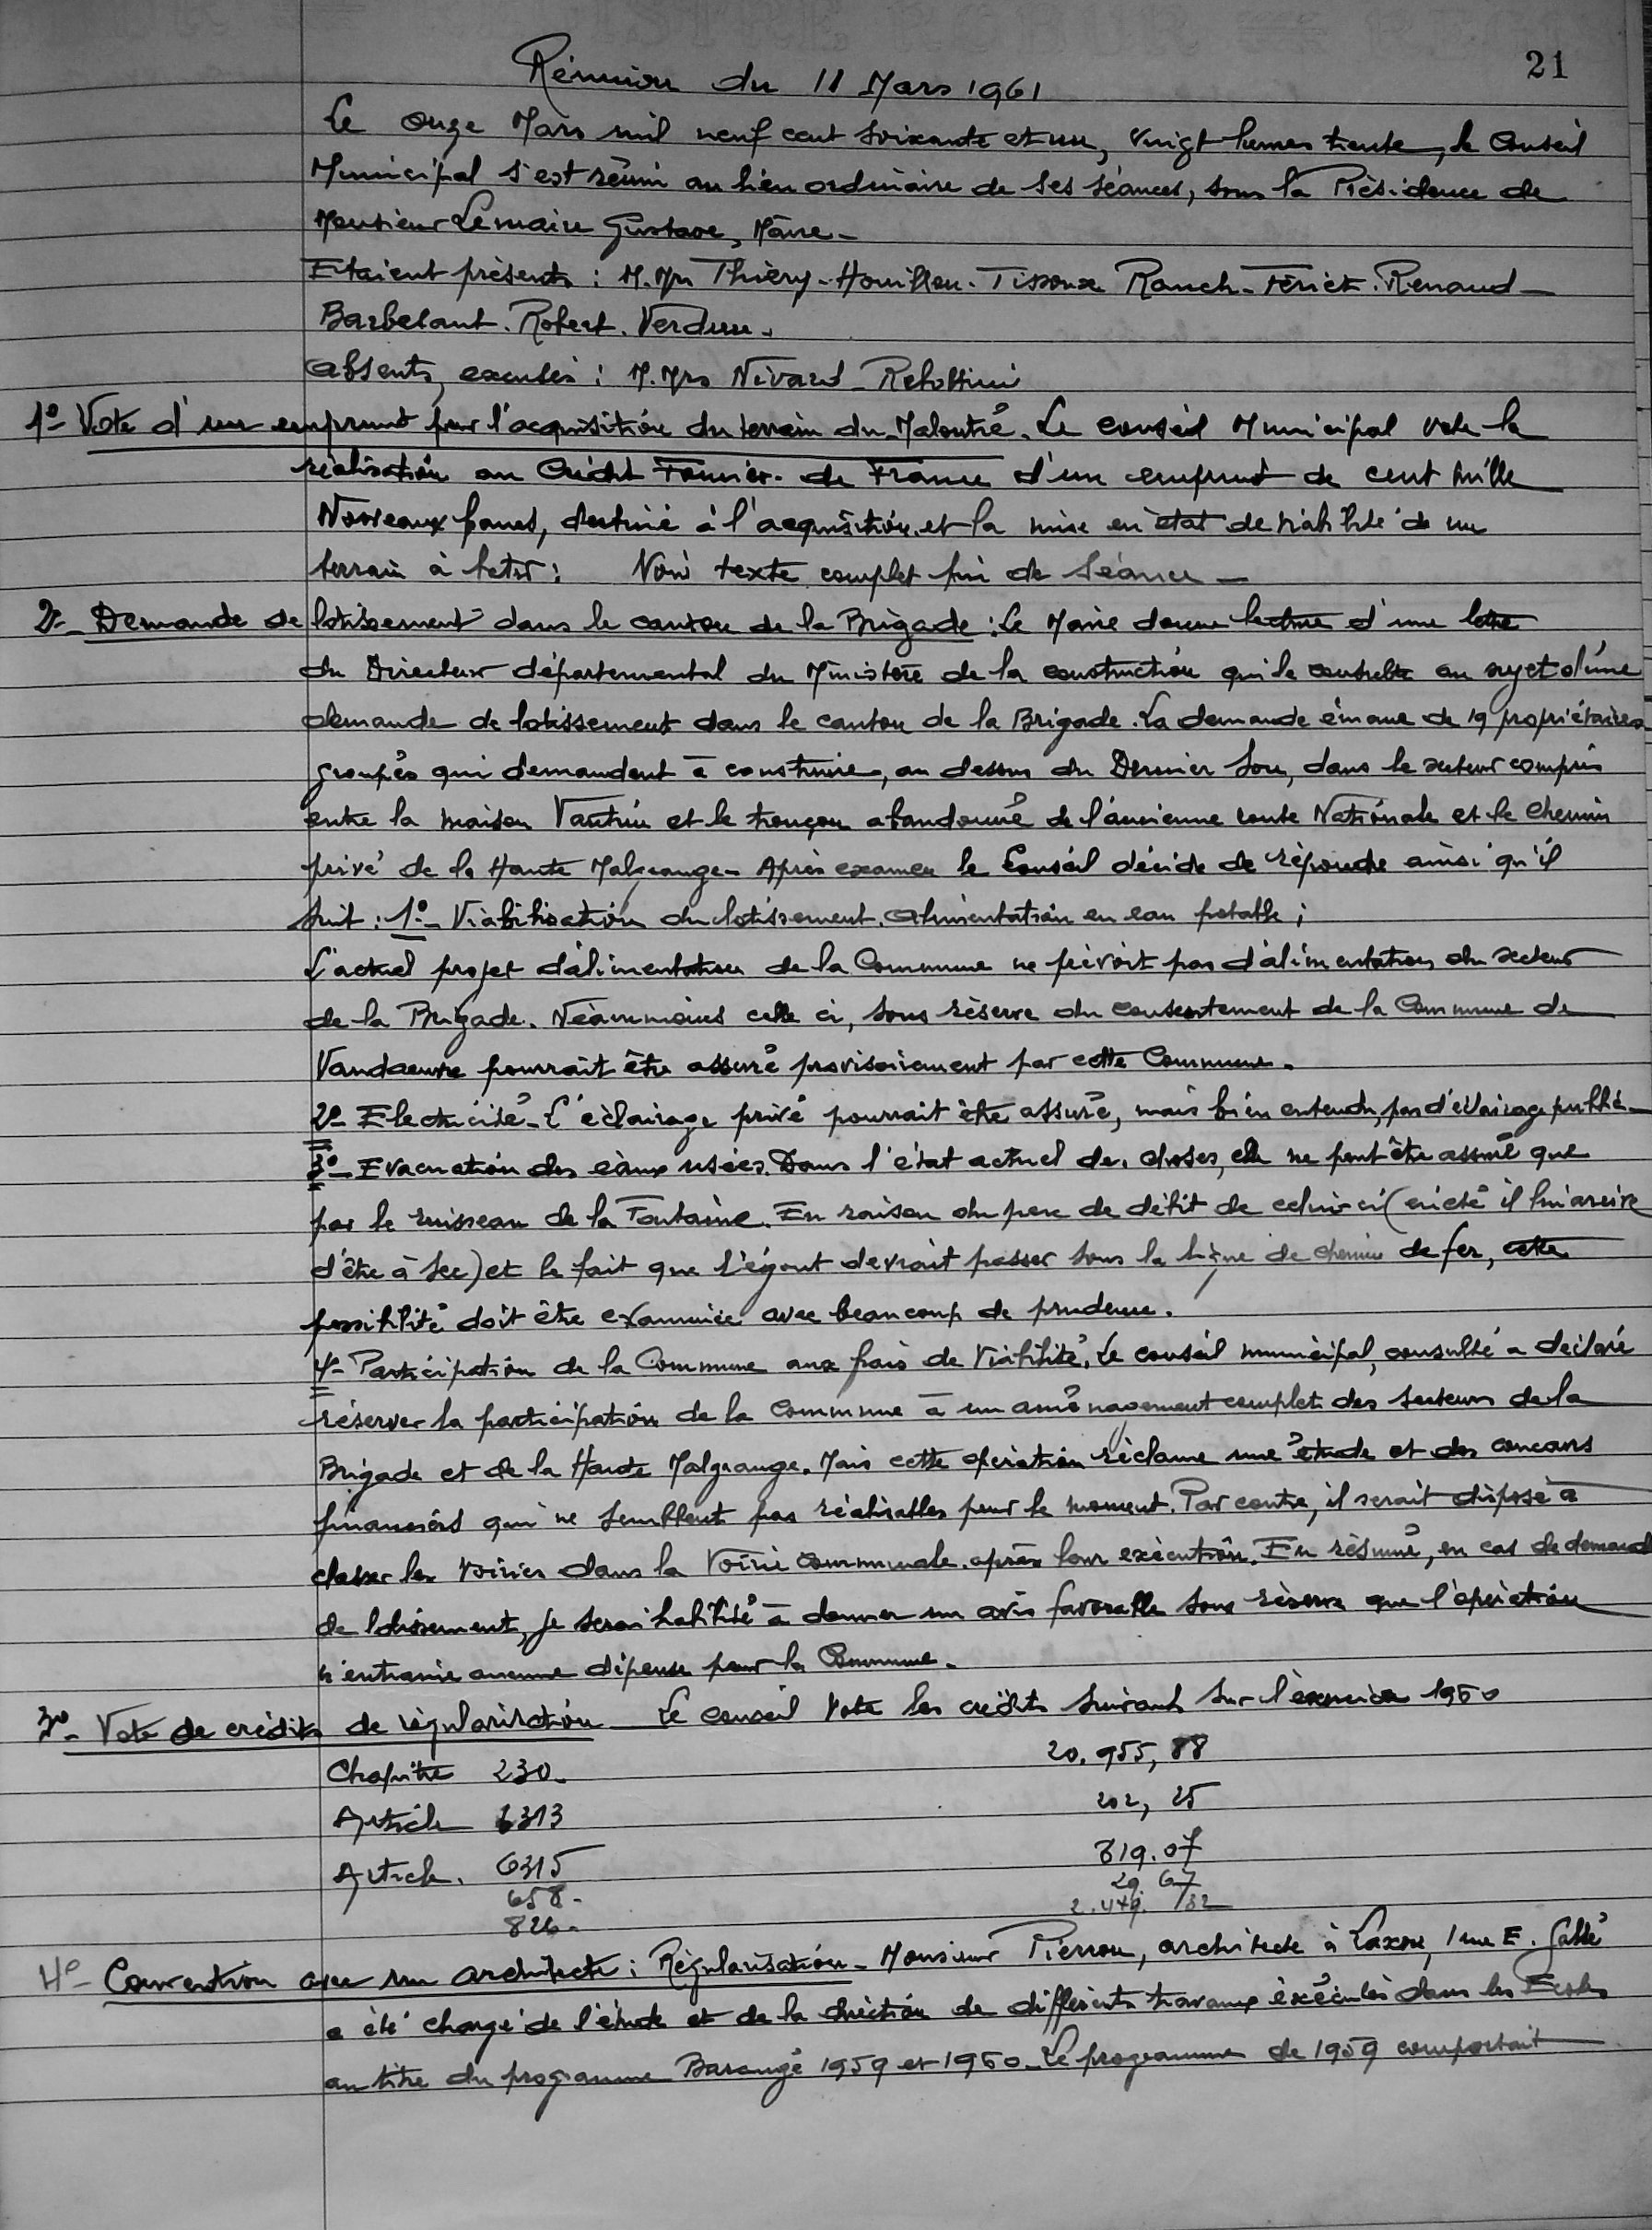 21
Réunion du 11 Mars 1961
Le onze Mars mil neuf cent soixante et un, vingt heures trente, le Conseil
Municipal s'est réuni au lieu ordinaire de ses séances, sous la Présidence de
Monsieur Lemaire Gustave, Maire -
Etaient présents : M.Mrs Thiéry - Houillon. Tisoux Rauch - Fériet. Renaud -
Barbelant. Robert. Verdun.
Absents, excusés : M.Mrs Nivard - Rebottini
1°- Vote d'un emprunt pour l'acquisition du terrain du Maloutré. Le conseil Municipal vote la
réalisation au Crédit Foncier de France d'un emprunt de cent mille
Nouveaux francs, destiné à l'acquisition et la mise en état de viabilité de un
terrain à batir : Voir texte complet fin de séance -
2°- Demande de lotissement dans le canton de la Brigade : Le Maire donne lecture d'une lettre
du Directeur départemental du Ministère de la construction qui le consulte au sujet d'une
demande de lotissement dans le canton de la Brigade. La demande émane de 19 propriétaires
groupés qui demandent à construire, au dessus du Dernier Sou, dans le secteur compris
entre la maison Vautrin et le tronçon abandonné de l'ancienne route Nationale et le chemin
privé de la Haute Malgrange - Après examen le Conseil décide de répondre ainsi qu'il
suit : 1°- Viabilisation du lotissement. Alimentation en eau potable ;
L'actuel projet d'alimentation de la Commune ne prévoit pas d'alimentation du secteur
de la Brigade. Néanmoins celle ci, sous réserve du consentement de la Commune de
Vandoeuvre pourrait être assuré provisoirement par cette Commune.
2°- Electricité - L'éclairage privé pourrait être assuré, mais bien entendu, pas d'éclairage public -
3°- Evacuation des eaux usées. Dans l'état actuel des choses, elle ne peut être assuré que
par le ruisseau de la Fontaine. En raison du peu de débit de celui-ci (en été il lui arrive
d'être à sec) et le fait que l'égout devrait passer sous la ligne de chemin de fer, cette
possibilité doit être examinée avec beaucoup de prudence.
4°- Participation de la Commune aux frais de viabilité. Le conseil municipal, consulté a déclaré
réserver la participation de la Commune à un aménagement complet des secteurs de la
Brigade et de la Haute Malgrange. Mais cette opération réclame une étude et des concours
financiers qui ne semblent pas réalisables pour le moment. Par contre, il serait disposé à
classer les voiries dans la Voirie Communale après leur exécution. En résumé, en cas de demande
de lotissement, je serai habilité à donner un avis favorable sous réserve que l'opération
n'entraine aucune dépense pour la Commune.
3°- Vote de crédits de régularisation - Le conseil vote les crédits suivants sur l'exercice 1960
Chapitre 230. 20.955,88
Article 6313 202,25
Article. 6315 319.07
658 - 29.67
826 - 2.449.
4°- Convention avec un architecte : Régularisation - Monsieur Pierron, architecte à Laxou, 1 rue E. Gallé
a été chargé de l'étude et de la direction de différents travaux éxécutés dans les Ecoles
au titre du programme Barangé 1959 et 1960 - Le programme de 1959 comportait